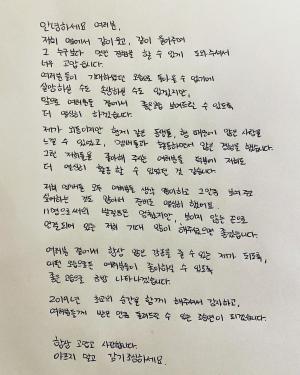 안녕하세요 여러분,
저희 옆에서 같이 웃고, 같이 울어주며
그 누구보다 멋진 경험을 할 수 있게 도와주셔서
너무 고맙습니다.
여러분들이 기대하셨던 모습으로 돌아올 수 없기에
실망하실 수도 속상하실 수도 있겠지만,
앞으로 여러분들 곁에서 좋은 모습 보여드릴 수 있도록
더 열심히 하겠습니다.
제가 되돌아보면 같은 한 많은 사랑을
느낄 수 있었고, 멤버들과 활동하면서 많은 경험을 했습니다.
그런 저희들을 좋아해 주신 여러분들 덕분에 저희도
더 열심히 활동 할 수 있었던 것 같습니다.
저희 멤버들 모두 여러분들 생각 많이하고 그만큼 보여 주고
싶어하는 것도 많아서 준비도 열심히 했어요..
11명으로서의 발걸음은 멈췄지만, 보이지 않는 끈으로
연결되어 있는 저희 기대 많이 해주셨으면 좋겠습니다.
여러분 곁에서 항상 많은 감동을 줄 수 있는 제가 되도록,
어떤 모습으로든 여러분들이 좋아하실 수 있도록
좋은 모습으로 금방 나타나겠습니다.
2019년 최고의 순간을 함께 해주셔서 감사하고,
여러분들께 받은 만큼 돌려드릴 수 있는 조승연이 되겠습니다.
항상 고맙고 사랑합니다.
아프지 말고 감기 조심하세요.